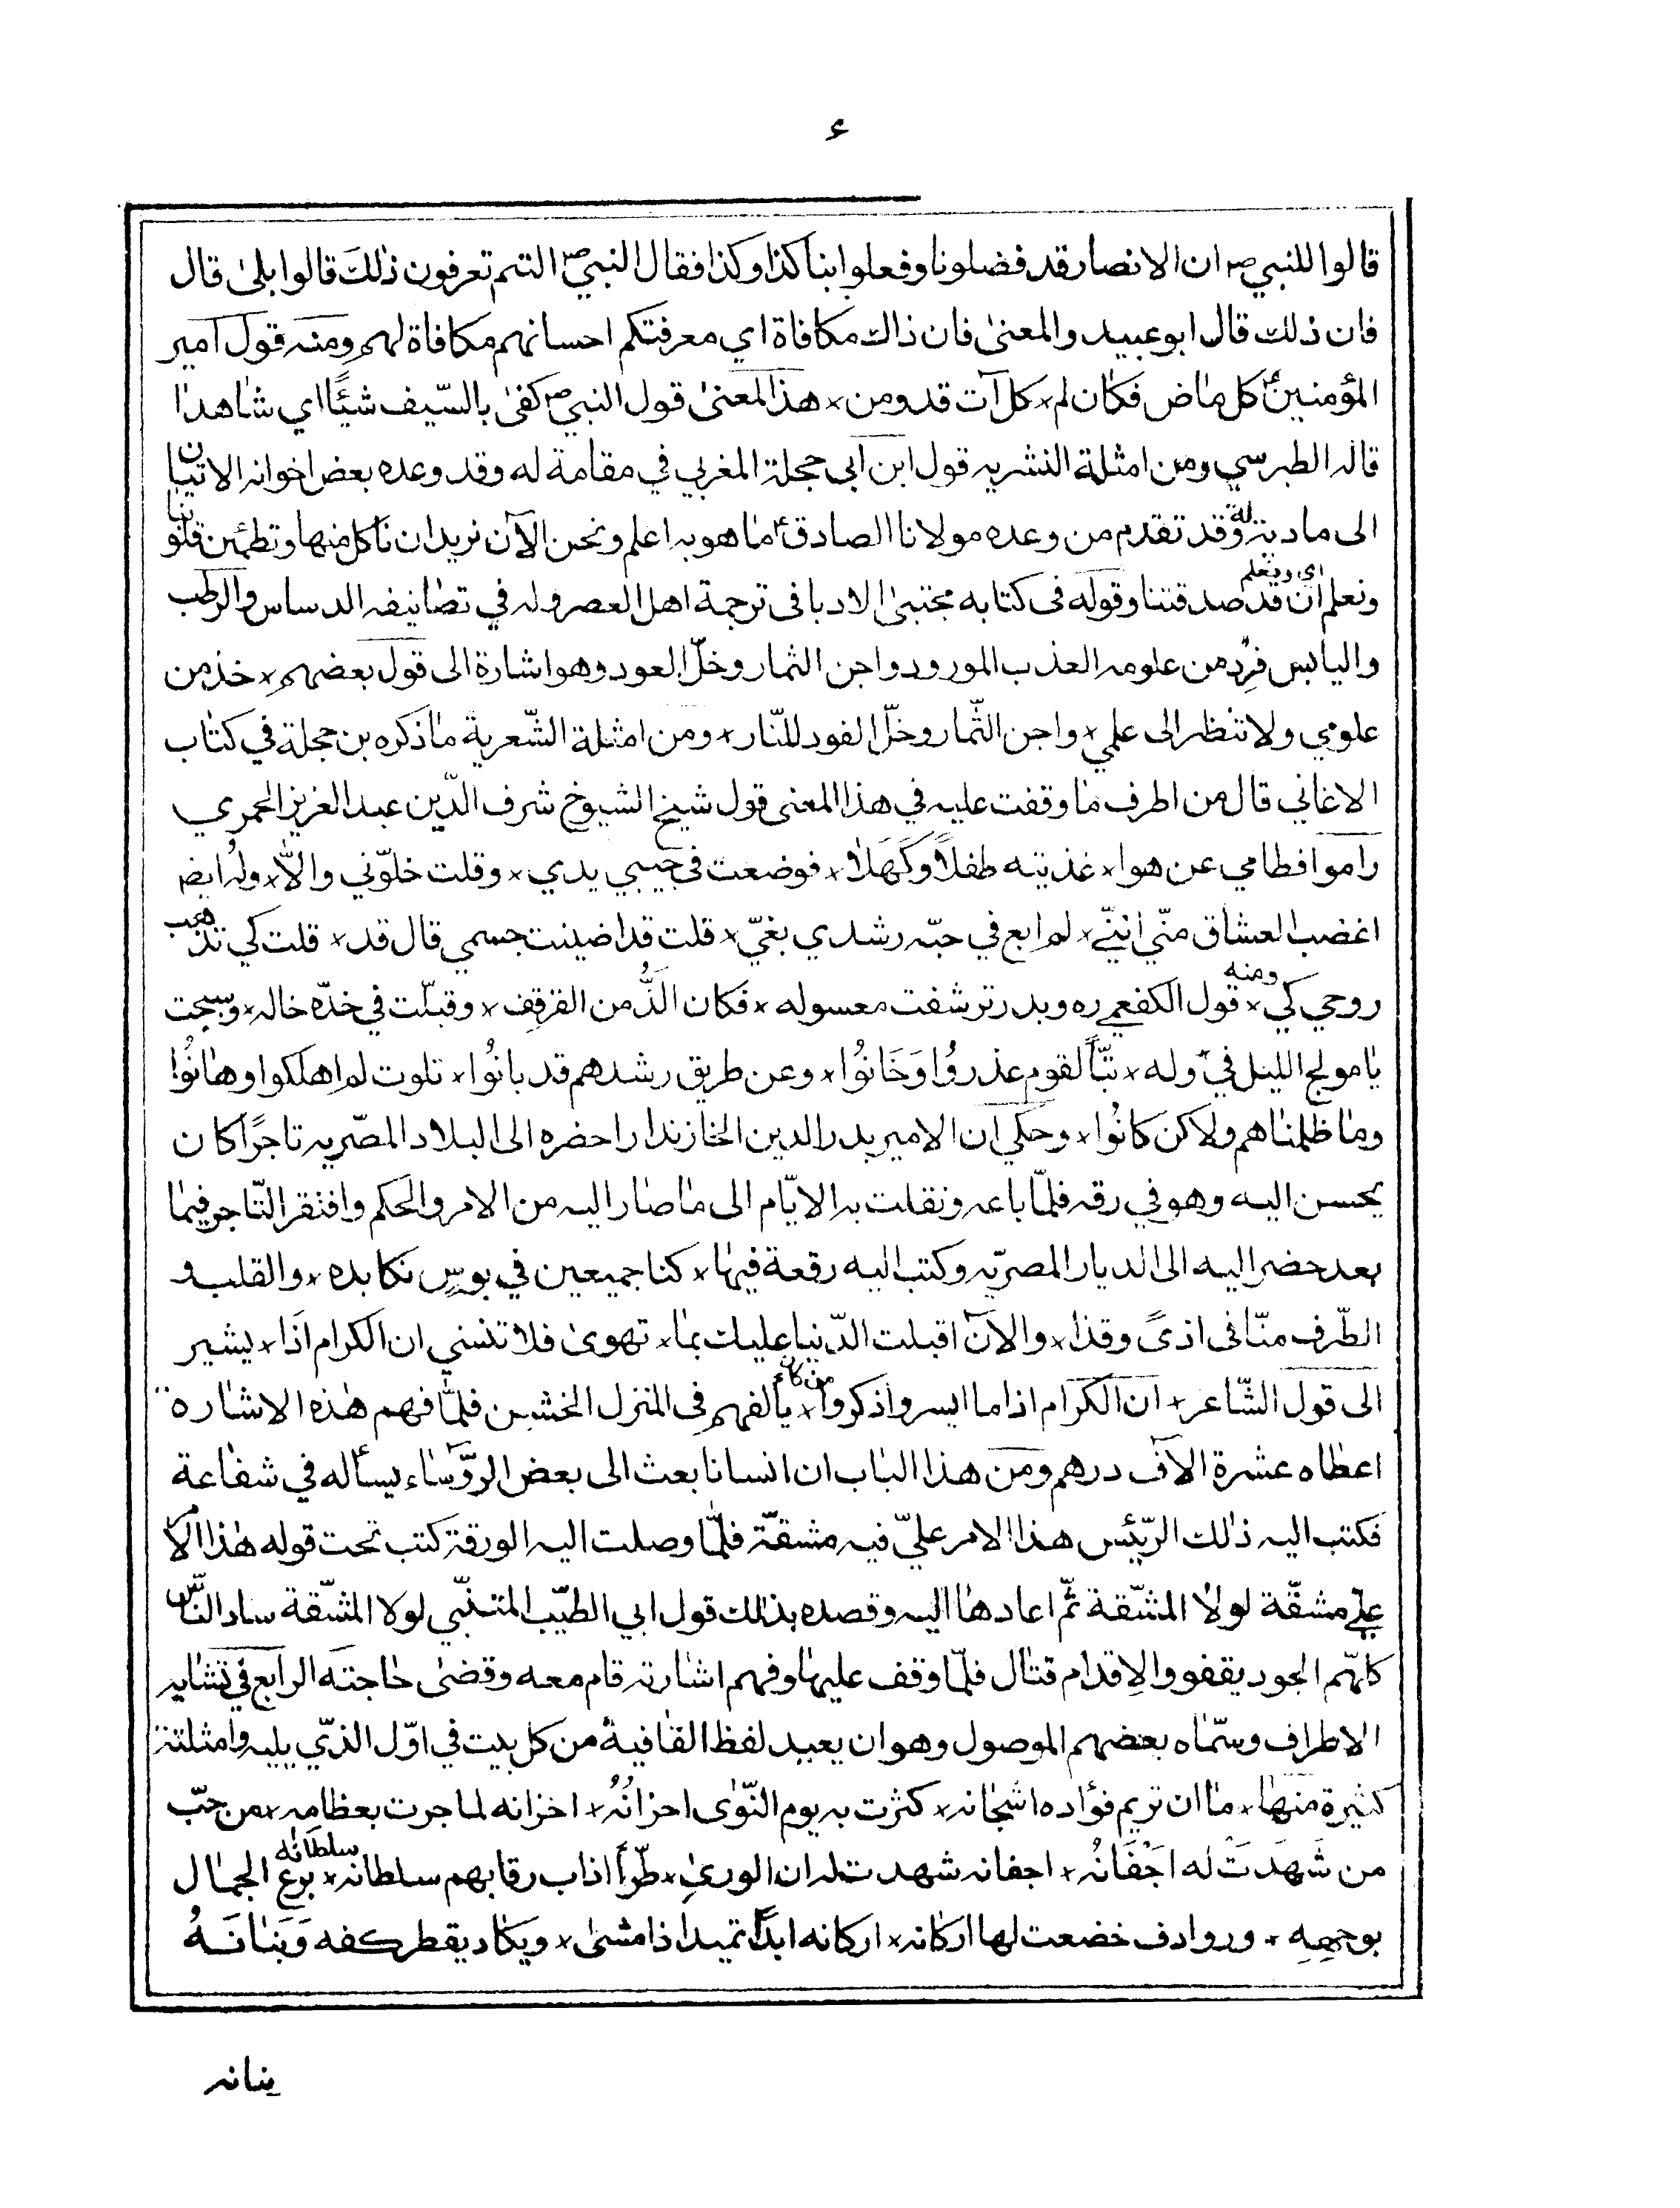 ٤
قالوا للنبي ص ان الانصار قد فضلونا وفعلوا بنا كذا وكذا فقال النبي ص التتم تعرفون ذلك قالوا بلى قال
فان ذلك قال ابو عبيد والمعنى فان ذاك مكافاة اي معرفتكم احسانهم مكافاة لهم ومنه قول امير
المؤمنين ع كل ماض فكان لم × كل آت قد ومن × هذا المعنى قول النبي ص كفى بالسّيف شيئًا اي شاهدا
قاله الطبرسي ومن امثلة النشريه قول ابن ابي حجلة المغربي في مقامة له وقد وعده بعض اخوانه الاتيان
الى مادبة له وقد تقدم من وعده مولانا الصادق ع ما هو به اعلم ونحن الآن نريد ان ناكل منها وتطمئن قلوبنا
ونعلم ان قد صدقتنا اي ونعلم وقوله فى كتابه مجتبى الادبا فى ترجمة اهل العصر وله في تصانيفه الدساس والرطب
واليابس فرد من علومه العذب المورورد واجن الثمار وخلّ العود وهو اشارة الى قول بعضهم × خذ من
علومي ولا تنظر الى علمي × واجن الثّمار وخلّ الفود للنّار × ومن امثلة الشّعرية ما ذكره بن حجلة في كتاب
الاغاني قال من اطرف ما وقفت عليه في هذا المعنى قول شيخ الشيوخ شرف الدّين عبد الغريز الحمري
راموا فطامي عن هوا × غذيته طفلاً وكَهَلا × فوضعت فى جيبي يدي × وقلت خلّوني والاّ × وله ايضا
اغضب العشاق منّي انّني × لم ابع في حبّه رشدي بغيّ × قلت قد اضينت جسمي قال قد × قلت كي تذهب
روحي كي × ومنه قول الكفعمي ره وبدر ترشفت معسوله × فكان الذُّ من القرقف × وقبلّت في خدّه خاله × وسبحت
يا مولج الليل في × وله × تبّاً لقوم عذروُا وَخَانوُا × وعن طريق رشدهم قد بانوُا × تلوت لم اهلكوا وهانوُا
وما ظلمناهم ولاكن كانوُا × وحكي ان الامير بدر الدين الخازندار احضره الى البلاد المصّريه تاجرًا كان
يحسن اليه وهو في رقه فلمّا باعه ونقلت به الايّام الى ما صار اليه من الامر والحكم وافتقر التّاجر فيما
بعد حضر اليه الى الديار المصريّه وكتب اليه رقعة فيها × كنا جميعين في بوسٍ نكابده × والقلب و
الطّرف منّا فى اذىً وقذا × والان اقبلت الدّنيا عليك بما × تهوى فلا تنسني ان الكرام اذا × يشير
الى قول الشّاعر × ان الكرام اذا ما ايسروا ذكروا × من كان يالفهم فى المنزل الخشبن فلمّا فهم هذه الاشاره
اعطاه عشرة الآف درهم ومن هذا الباب ان انسانا بعث الى بعض الروّساء يسأله في شفاعة
فكتب اليه ذلك الرّئيس هذا الامر عليّ فيه مشقّة فلمّا وصلت اليه الورقة كتب تحت قوله هذا الامر
عليّ مشقّة لولا المشّقة ثمّ اعادها اليه وقصده بذلك قول ابي الطيّب المتنبّي لولا المشّقة ساد النّاس
كلهّم الجود يقفو والاِقدام قتال فلمّا وقف عليها وفهم اشارته قام معه وقضى حاجته الرابع في تشابه
الاطراف وسمّاه بعضهم الموصول وهو ان يعيد لفظ القافية من كل بيت في اوّل الذّي يليه وامثلته
كثيرة منها × ما ان تريم فؤاده اشجانه × كثرت به يوم النّوى احزانُهُ × اخزانه لما جرت بعظامه × من حبّ
من شَهِدَتْ له اجْفَانُه × اجفانه شهدت له ان الورى × طرّاً اذاب رقابهم سلطانه × سلطانه برع الجمال
بوجهِهِ × وروادف خضعت لها اركانه × اركانه ابدًا تميد اذا مشى × ويكاد يقطر كفه وَبَنانَهُ
بنانه